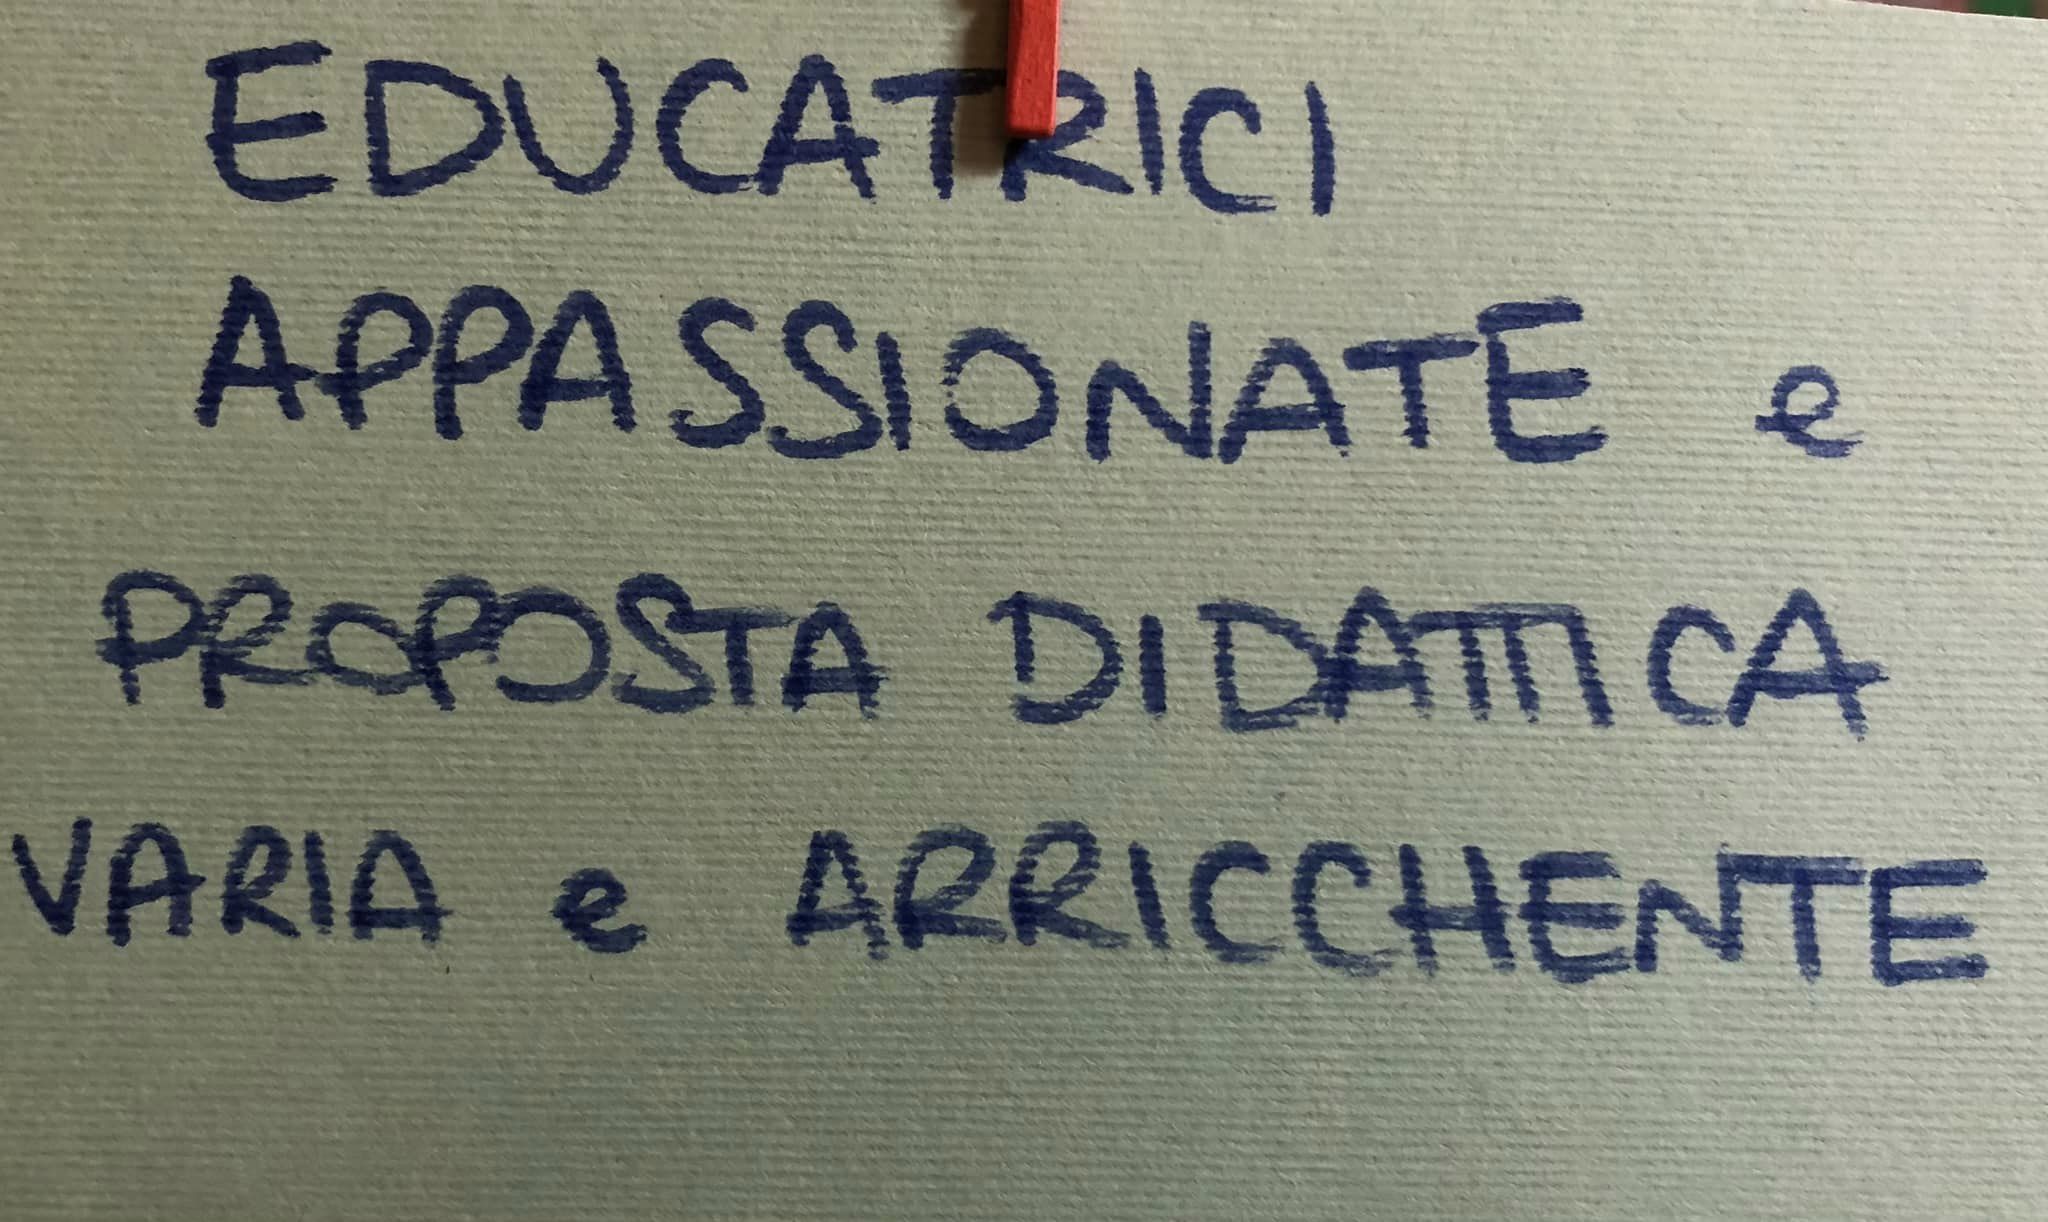 EDUCATRICI
APPASSIONATE e
PROPOSTA DIDATTICA
VARIA e ARRICCHENTE